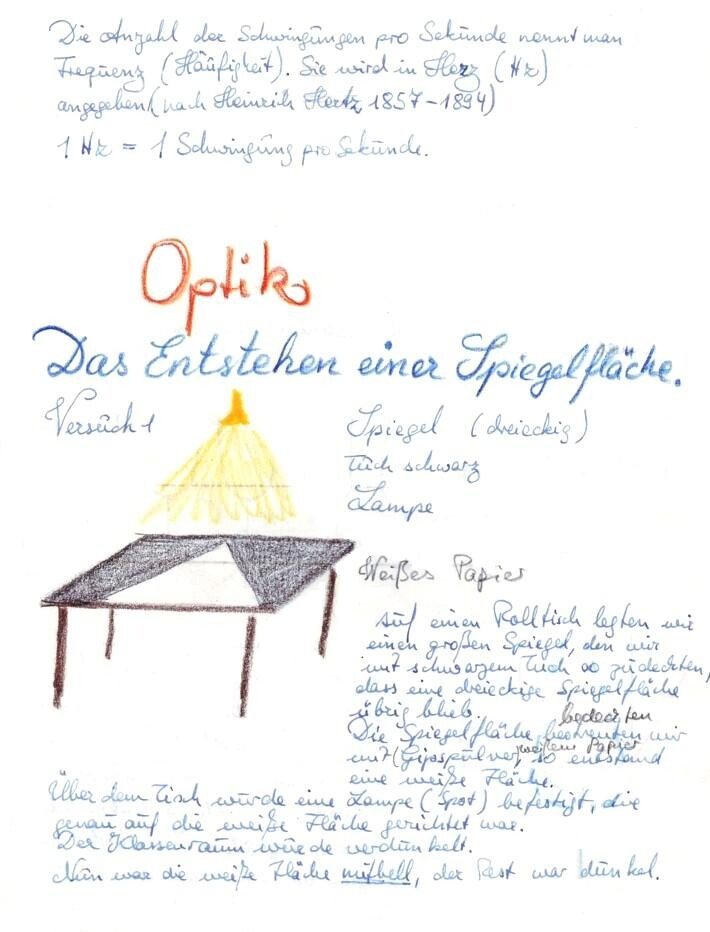 Die Anzahl der Schwingungen pro Sekunde nennt man
Frequenz (Häufigkeit). Sie wird in Herz (Hz)
angegeben (nach Heinrich Hertz 1857–1894)
1 Hz = 1 Schwingung pro Sekunde.
Optik
Das Entstehen einer Spiegelfläche.
Versuch 1
Spiegel (dreieckig)
Tuch schwarz
Lampe
Weißes Papier
Auf einen Rolltisch legten wir
einen großen Spiegel, den wir
mit schwarzem Tuch so zudeckten,
dass eine dreieckige Spiegelfläche
übrig blieb.
bedeckten
Die Spiegelfläche bestreuten wir
weißem Papier
mit (Gipspulver) so entstand
eine weiße Fläche.
Über dem Tisch wurde eine Lampe (Spot) befestigt, die
genau auf die weiße Fläche gerichtet war.
Der Klassenraum wurde verdunkelt.
Nun war die weiße Fläche hell, der Rest war dunkel.